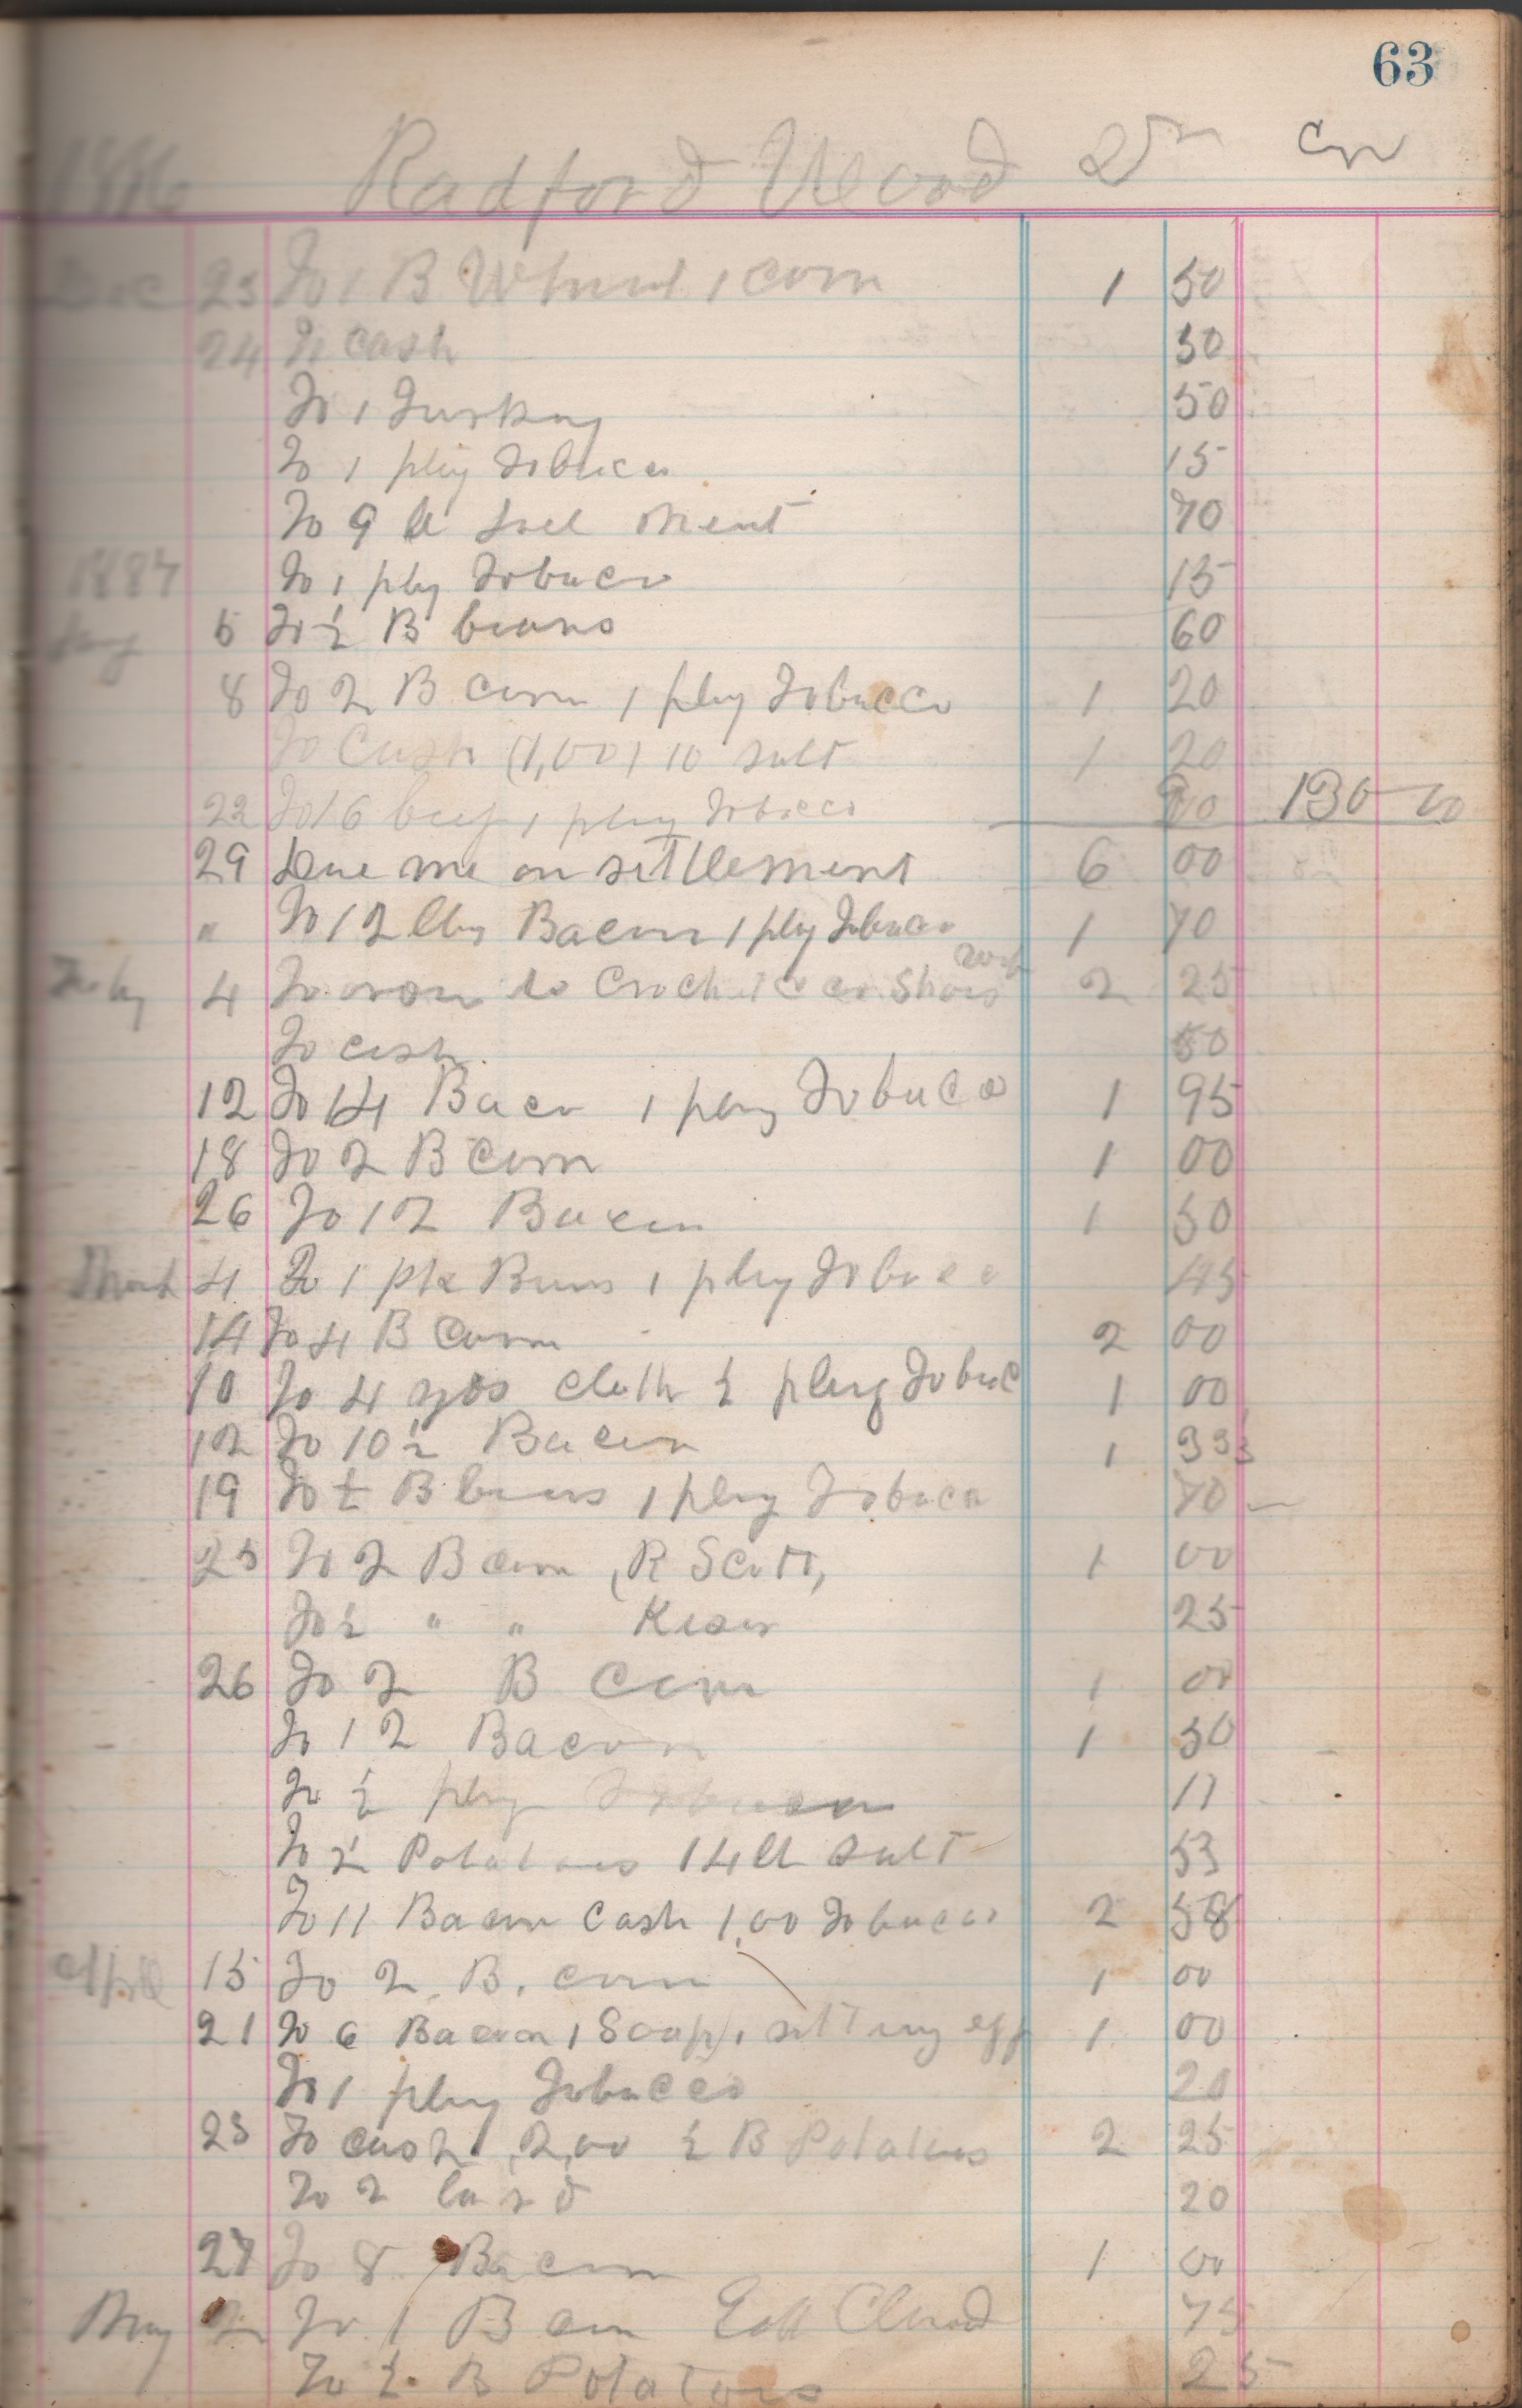 63
1886 Radford Wood Dr Cr
Dec 23 To 1 B Wheat 1 corn 1 50
24 To cash 50
To 1 Turkey 50
To 1 plug Tobacco 15
To 9 lb Meat 70
1887 To 1 plug Tobaco 15
Jany 5 To ½ B beans 60
8 To 2 B Corn 1 plug Tobacco 1 20
To Cash (1,00) 10 salt 1 20
22 To 16 beef 1 plug Tobacco 130
29 Due me on settlement 6 00
" To 12 lbs Bacon 1 plug Tobacco 1 70
Feby 4 To 2 25
To cash 50
12 To 14 Bacon 1 plug Tobacco 1 95
18 To 2 B Corn 1 00
26 To 12 Bacon 1 50
March 4 To 1 pk Beans 1 plug Tobacco 45
14 To 4 B Corn 2 00
10 To 4 yds cloth ½ plug Tobac 1 00
12 To 10½ Bacon 1
19 To ½ B beans 1 plug Tobaco 70
25 To 2 B corn (R Scott) 1 00
To ½ " " 25
26 To 2 B Corn 1 00
To 12 Bacon 1 50
To ½ plug Tobacco 11
To ½ Potatoes 14 lb salt 53
To 11 Bacon Cash 1,00 Tobacco 2 58
April 15 To 2 B. corn 1 00
21 To 6 Bacon 1 Soap, 1 setting egg 1 00
To 1 plug Tobacco 20
23 To cash 2,00 ½ B Potatoes 2 25
To 2 lard 20
27 To 8 Bacon 1 00
May 2 To 1 B corn 75
To ½ B Potatoes 25